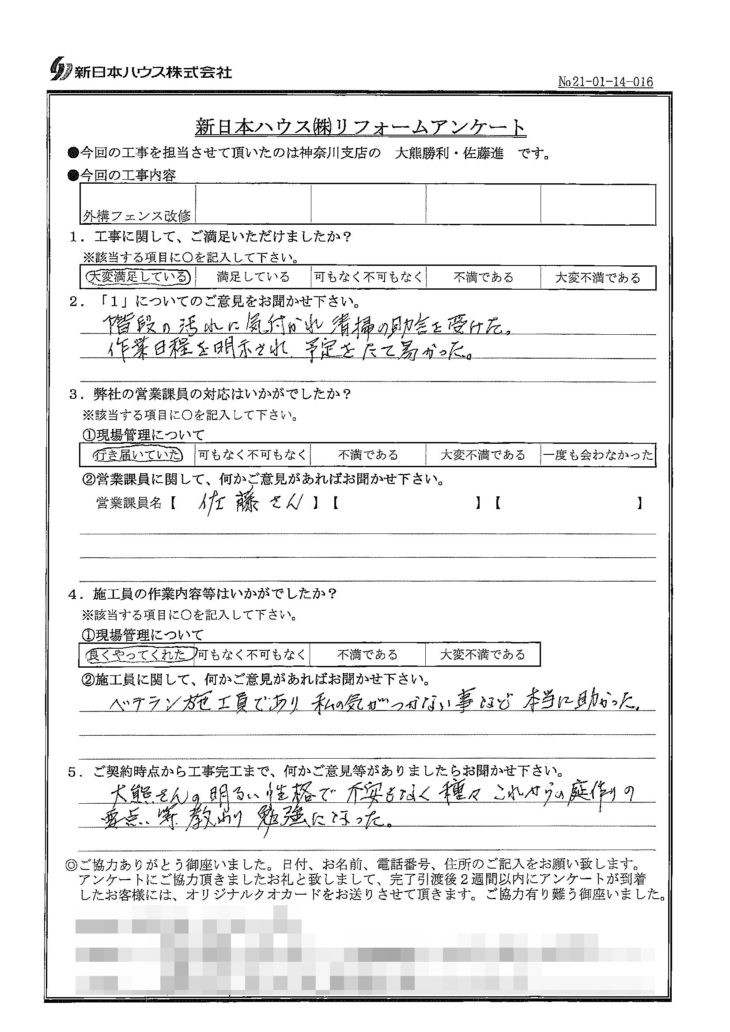 新日本ハウス株式会社
№21-01-14-016
新日本ハウス㈱リフォームアンケート
●今回の工事を担当させて頂いたのは神奈川支店の 大熊勝利・佐藤進 です。
●今回の工事内容
外構フェンス改修
1．工事に関して、ご満足いただけましたか？
※該当する項目に○を記入して下さい。
大変満足している 満足している 可もなく不可もなく 不満である 大変不満である
2．「1」についてのご意見をお聞かせ下さい。
階段の汚れに気付かれ 清掃の助言を受けた。
作業日程を明示され 予定をたて易かった。
3．弊社の営業課員の対応はいかがでしたか？
※該当する項目に○を記入して下さい。
①現場管理について
行き届いていた 可もなく不可もなく 不満である 大変不満である 一度も会わなかった
②営業課員に関して、何かご意見があればお聞かせ下さい。
営業課員名【 佐藤さん 】【 】【 】
4．施工員の作業内容等はいかがでしたか？
※該当する項目に○を記入して下さい。
①現場管理について
良くやってくれた 可もなく不可もなく 不満である 大変不満である
②施工員に関して、何かご意見があればお聞かせ下さい。
ベテラン施工員であり 私の気がつかない事など 本当に助かった。
5．ご契約時点から工事完工まで、何かご意見等がありましたらお聞かせ下さい。
大熊さんの明るい性格で 不安もなく 種々 これからの庭作りの
要点 等 教わり 勉強になった。
◎ご協力ありがとう御座いました。日付、お名前、電話番号、住所のご記入をお願い致します。
アンケートにご協力頂きましたお礼と致しまして、完了引渡後２週間以内にアンケートが到着
したお客様には、オリジナルクオカードをお送りさせて頂きます。ご協力有り難う御座いました。